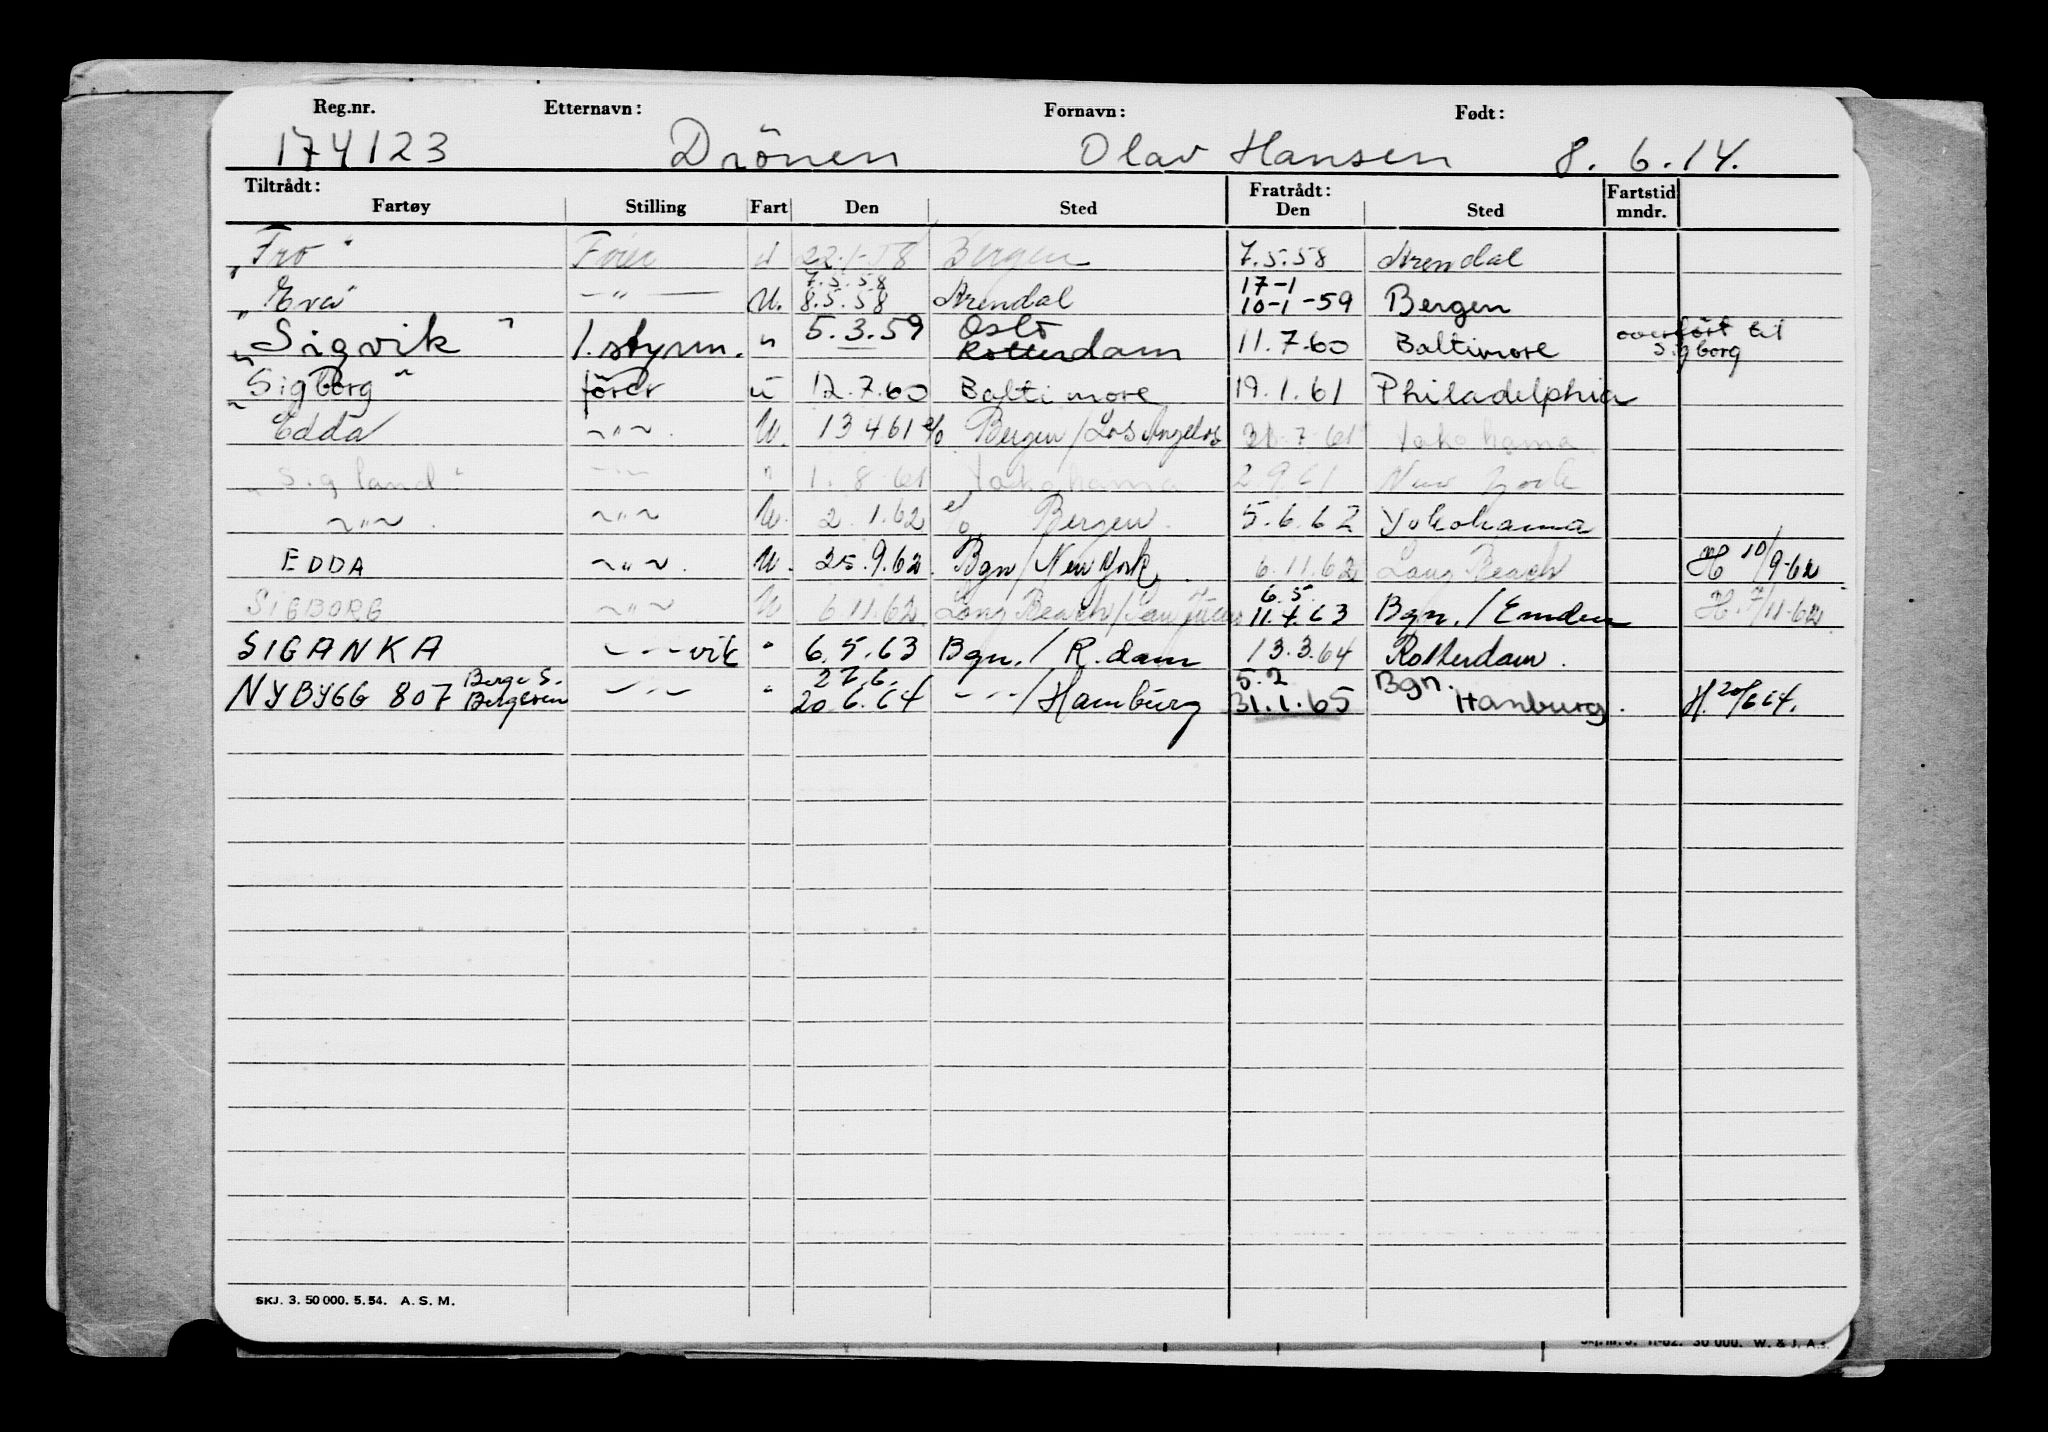 Reg.nr. Etternavn: Fornavn: Født:
174123 Drönen Olav Hansen 8. 6. 14.
Tiltrådt: Fratrådt: Fartstid
Fartøy Stilling Fart Den Sted Den Sted mndr.
"Fro" Förer u 22.1.58 Bergen 7.5.58 Arendal
7.5.58 17-1
"Eva" —"— U. 8.5.58 Arendal 10-1-59 Bergen
Oslo overført til
"Sigvik" 1. styrm. " 5.3.59 Rotterdam 11.7.60 Baltimore Sigborg
"Sigborg" förer u 12.7.60 Baltimore 19.1.61 Philadelphia
Edda ~"~. U. 13 4 61 e/o Bergen/Los Angelos 31.7.61 Yokohama
"Sigland" —"— " 1. 8. 61 Yokohama 2.9.61 New York
~"~. ~"~ U. 2.1.62 e/o Bergen. 5.6.62 Yokohama
EDDA ~"~. U. 25.9.62. Bgn/New York. 6.11.62 Long Beach H 10/9-62
6.5.
SIGBORG ~"~ U 6.11.62 Long Beach/ 11.4.63 Bgn./Emden H. 7/11-62.
SIGANKA —"—vik " 6.5.63 Bgn./R.dam 13.3.64 Rotterdam.
Berge S. 27.6. 5.2 Bgn.
NYBYGG 807 Bergesen —"— " 20.6.64 —"—/Hamburg 31.1.65 Hamburg. H. 20/6 64.
SKJ. 3. 50 000. 5. 54. A. S. M.
Skj. nr. 3. 11-62. 30 000. W. & J. A.s.